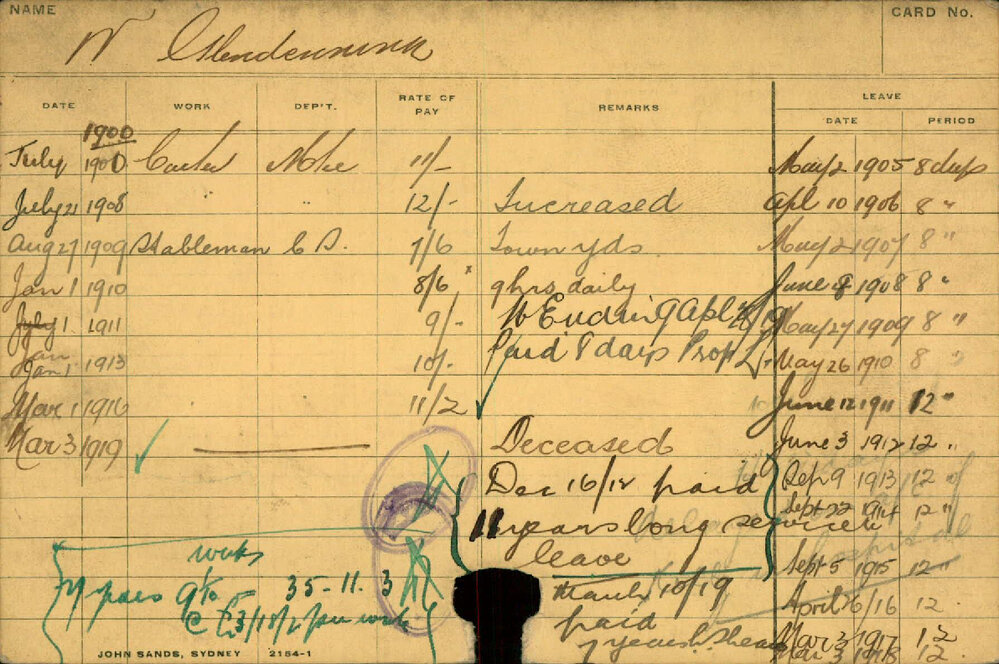 NAME
W Glendenning
CARD No.
DATE WORK DEP'T. RATE OF PAY REMARKS LEAVE DATE PERIOD
1900
July 1900 Carter 11/- May 2 1905 8 days
July 21 1908 " " 12/- Increased Apl 10 1906 8 "
Aug 27 1909 Stableman C D. 7/6 Town yds May 2 1907 8 "
Jan 1 1910 8/6 9 hrs daily June 8 1908 8 "
July 1 1911 9/- W Ending 9 Apl May 27 1909 8 "
Jan
Jan 1 1913 10/- Paid 8 days Prop L. May 26 1910 8 "
Mar 1 1916 11/2 June 12 1911 12 "
Mar 3 1919 Deceased June 3 1912 12 "
Dec 16/18 paid Sep 9 1913 12
11 years long service Sept 22 1914 12 "
leave Sept 5 1915 12 "
weeks
7 years 9 1/10 - 35-11.3 March 10/19 April 6/16 12
@ £3/18/2 per week paid Mar 3 1917 12
7 years Mar 3 1918 12
JOHN SANDS, SYDNEY 2154-1